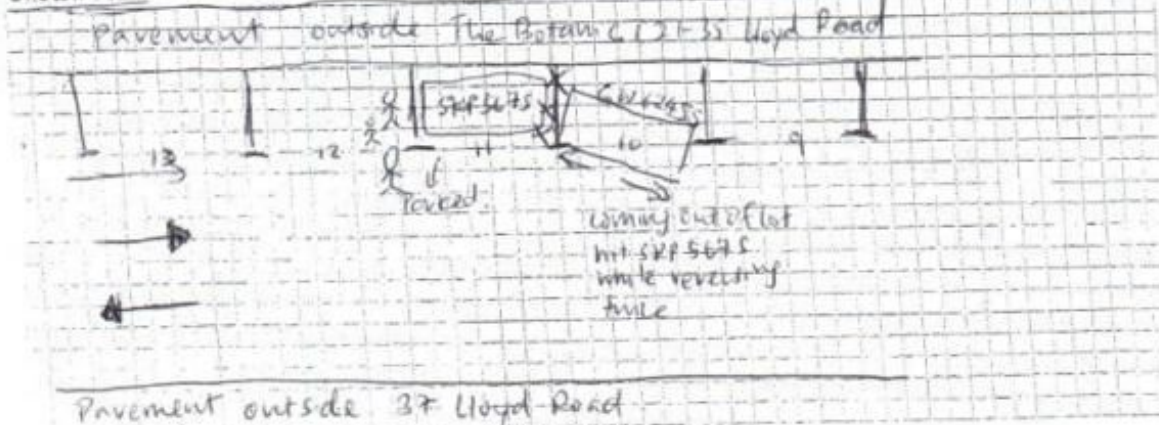 Pavement outside The Botanic 21-35 Lloyd Road
SKP5675
13
12
11
10
9
Parked
coming out of lot
hit SKP5675
while reversing
twice
Pavement outside 37 Lloyd Road